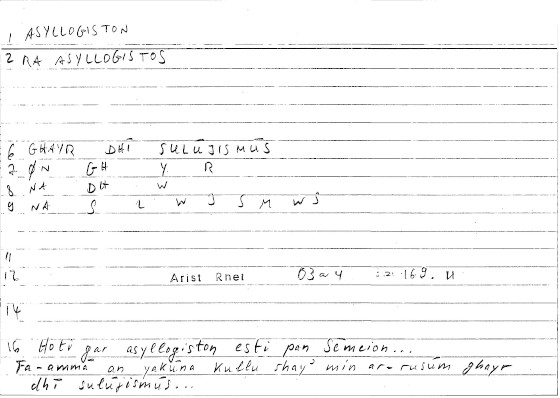 1 ASYLLOGISTON
2 RA ASYLLOGISTOS
6 GHAYR DHĪ SULŪJISMŪS
7 ØN GH Y R
8 NA DH W
9 NA S L W J S M W S
11
12 Arist Rhet 03a4 :21 169. 11
14
16 Hoti gar asyllogiston esti pan Sēmeion...
Fa-ammā an yakūna kullu shay' min ar-rusūm ghayr
dhī sulūjismūs...